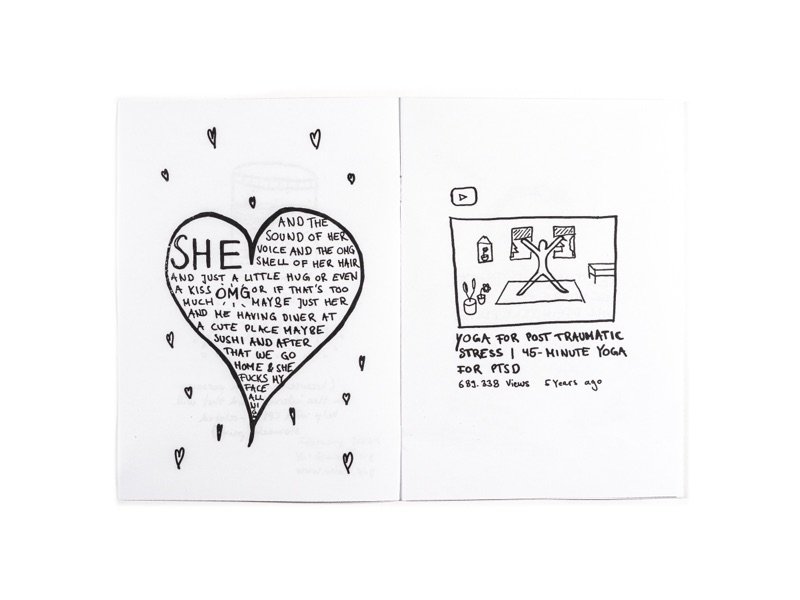 SHE
AND THE
SOUND OF HER
VOICE AND THE OMG
SMELL OF HER HAIR
AND JUST A LITTLE HUG OR EVEN
A KISS OMG OR IF THAT'S TOO
MUCH MAYBE JUST HER
AND ME HAVING DINER AT
A CUTE PLACE MAYBE
SUSHI AND AFTER
THAT WE GO
HOME & SHE
FUCKS MY
FACE
ALL
YOGA FOR POST TRAUMATIC
STRESS | 45-MINUTE YOGA
FOR PTSD
689.338 Views 5 Years ago